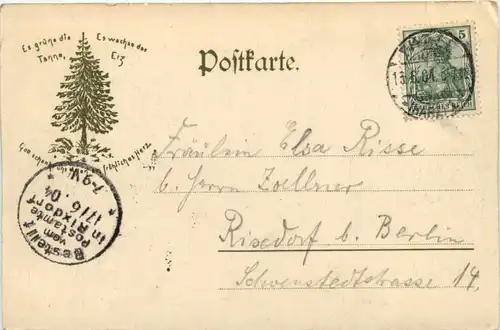 Es grüne die Tanne,
Es wachse das Erz
Gott schenke
fröhliches Herz
Postkarte.
5
(HARZ)
Fräulein Elsa Risse
b. Herrn Zoellner
Rixdorf b. Berlin
Schwenstedtstrasse 14.
Bestellt
vom
Postamte
in Rixdorf
17/6.04
7-9 N.